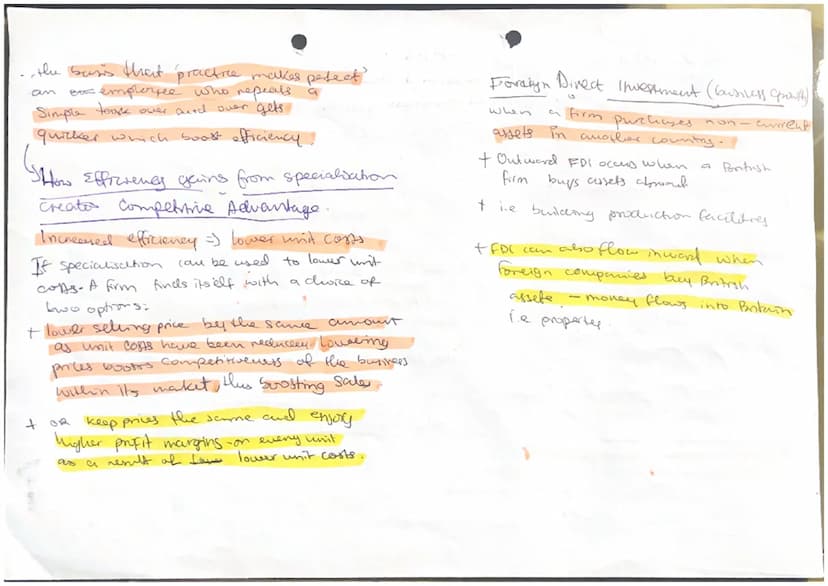 . . the basis that 'practice makes perfect'
an employee who repeats a
simple task over and over gets
quicker which boost efficiency.
How Efficiency gains from specialisation
creates Competitive Advantage.
Increased efficiency => lower unit costs
If specialisation can be used to lower unit
costs. A firm finds itself with a choice of
two options:
+ lower selling price by the same amount
as unit costs have been reduced. Lowering
prices boosts competitiveness of the business
within its market, thus boosting sales
+ or keep prices the same and enjoy
higher profit margins on every unit
as a result of lower unit costs.
Foreign Direct Investment (business growth)
when a firm purchases non-current
assets in another country.
+ Outward FDI occurs when a British
firm buys assets abroad
+ i.e building production facilities
+ FDI can also flow inward when
foreign companies buy British
assets - money flows into Britain
i.e property